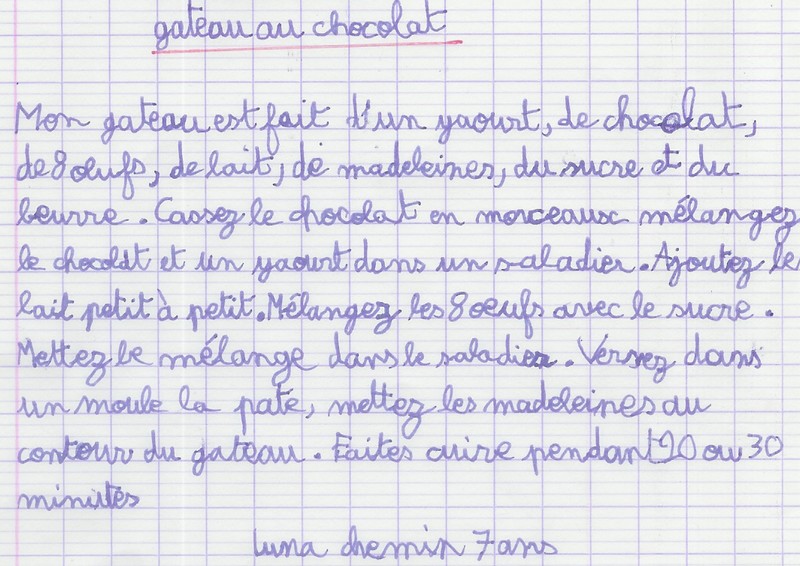 gateau au chocolat
Mon gateau est fait d'un yaourt, de chocolat,
de 8 œufs, de lait, de madeleines, du sucre et du
beurre. Cassez le chocolat en morceaux mélangez
le chocolat et un yaourt dans un saladier. Ajoutez le
lait petit à petit. Mélangez les 8 oeufs avec le sucre.
Mettez le mélange dans le saladier. Versez dans
un moule la pate, mettez les madeleines au
contour du gateau. Faites cuire pendant 20 ou 30
minutes
Luna chemin 7 ans